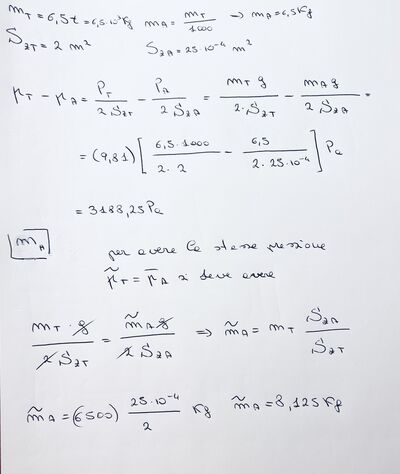 m_T = 6,5 t = 6,5·10³ Kg   m_A = m_T/1000 → m_A = 6,5 Kg
S_2T = 2 m²   S_2A = 25·10⁻⁴ m²
p_T - p_A = P_T/(2 S_2T) - P_A/(2 S_2A) = m_T g/(2·S_2T) - m_A g/(2 S_2A) =
= (9,81) [ 6,5·1000/(2·2) - 6,5/(2·25·10⁻⁴) ] Pa
= 3188,25 Pa
m_A   per avere la stessa pressione
p̃_T = p̃_A si deve avere
m_T·g/(2 S_2T) = m̃_A g/(2 S_2A) ⇒ m̃_A = m_T S_2A/S_2T
m̃_A = (6500) 25·10⁻⁴/2 Kg   m̃_A = 8,125 Kg